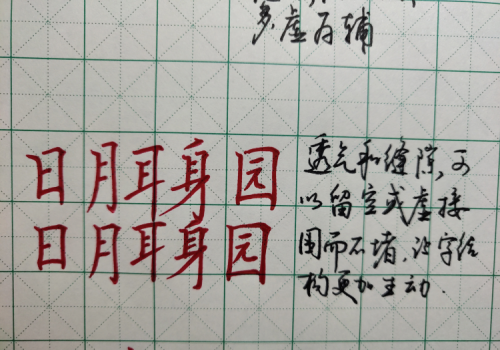 多虚右辅
日月耳身园
日月耳身园
透气和缝隙,可
以留空或虚接
围而不堵,让字结
构更加生动.